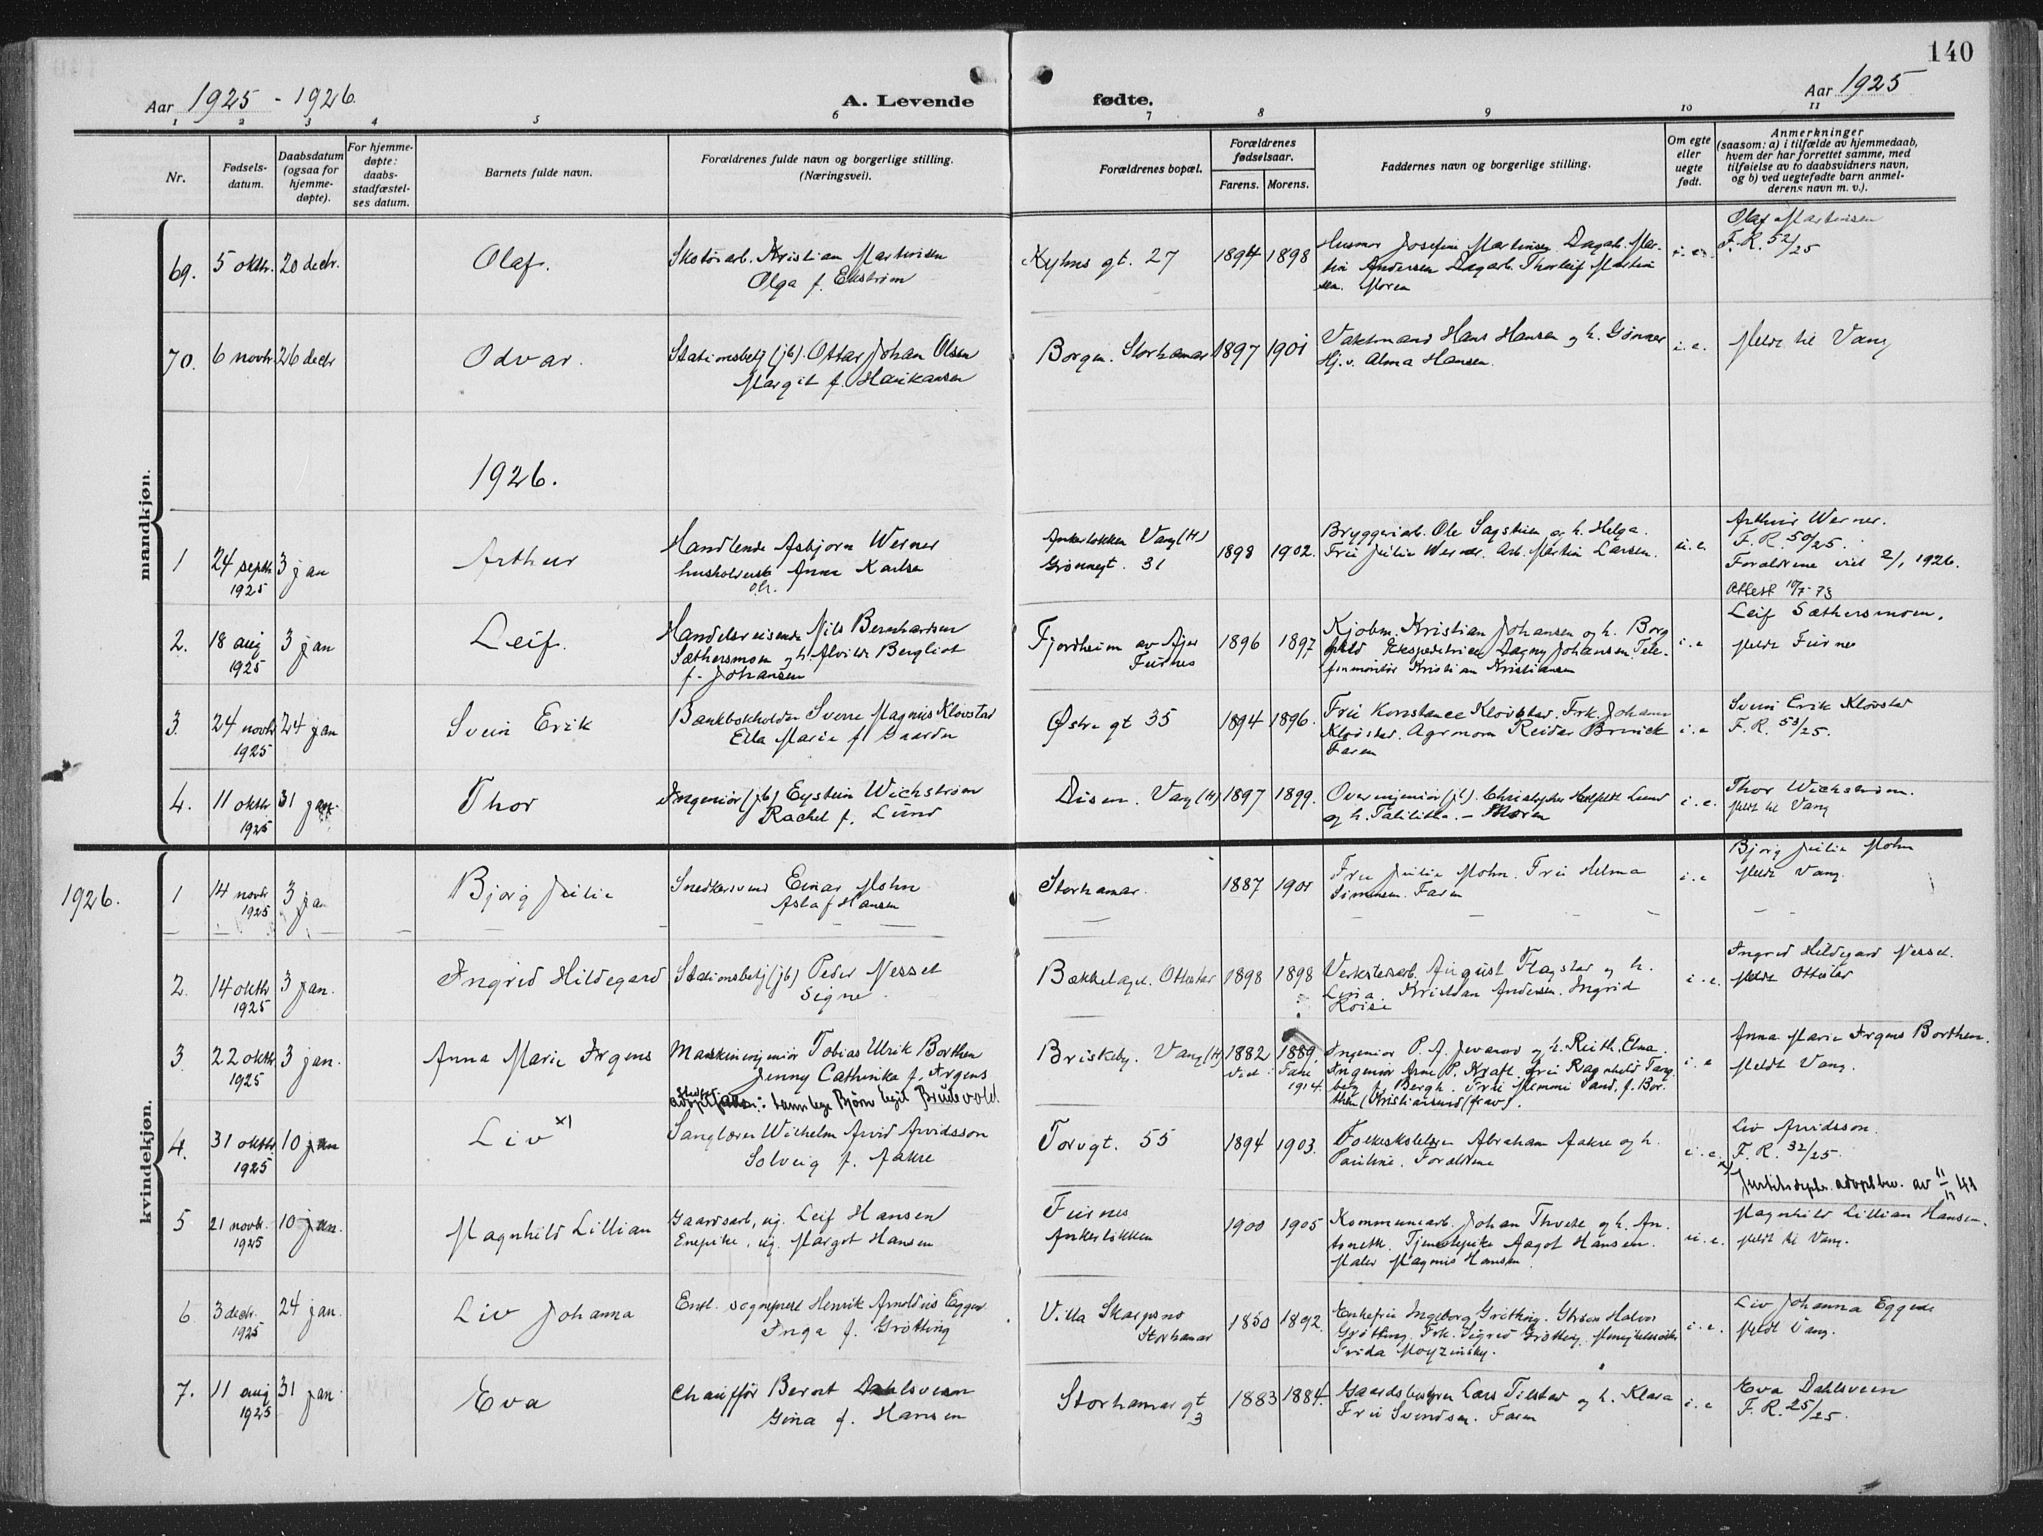 140
Aar 1925 - 1926.
A. Levende fødte.
Aar 1925
1 2 3 4 5 6 7 8 9 10 11
Nr.
Fødsels-
datum.
Daabsdatum
(ogsaa for
hjemme-
døpte).
For hjemme-
døpte:
daabs-
stadfæstel-
ses datum.
Barnets fulde navn.
Forældrenes fulde navn og borgerlige stilling.
(Næringsvei).
Forældrenes bopæl.
Forældrenes
fødselsaar.
Farens. Morens.
Faddernes navn og borgerlige stilling.
Om egte
eller
uegte
født.
Anmerkninger
(saasom: a) i tilfælde av hjemmedaab,
hvem der har forrettet samme, med
tilføielse av to daabsvidners navn,
og b) ved uegtefødte barn anmel-
derens navn m. v.).
mandkjøn.
69. 5 oktbr. 20 decbr. Olaf.
Skotøiarb. Kristian Martinsen
Olga f. Ekstrøm
Kyhns gt. 27 1894 1898
Husmor Josefine Martinsen Dagarb. Mar-
tin Andersen Dagarb. Thorleif Martin
sen. Moren
i. e.
Olaf Martinsen
F. R. 52/25
70. 6 novbr. 26 decbr Odvar.
Stationsbetj (jb). Ottar Johan Olsen
Margit f. Haukaasen
Borgen. Storhamar 1897 1901
Vaktmand Hans Hansen og h. Gunnar
Hj. v. Alma Hansen.
i. e.
Meldt til Vang
1926.
1 24 septbr 1925 3 jan Arthur
Handlende Asbjørn Werner
husholderske Anna Karlsen
Ankerløkken Vang (H)
Grønnegt. 31
1898 1902.
Bryggeriarb. Ole Sagstuen og h. Helga.
Fru Julie Werner. Arb. Martin Larsen.
u. e.
Arthur Werner.
F. R. 50/25.
Forældrene viet 2/1 1926.
Attest
2. 18 aug 1925 3 jan Leif.
Handelsreisende Nils Bernhardsen
Sæthersmoen og h. Alvilde Bergliot
f. Johansen
Fjordheim av Ajer
Furnes
1896 1897
Kjøbm. Kristian Johansen og h. Borg
hild Ekspeditrice Dagny Johansen. Tele-
fonmontør Kristian Kristiansen
i. e
Leif Sæthersmoen.
Meldt Furnes
3. 24 novbr 1925 24 jan Svein Erik
Bankbokholder Sverre Magnus Kløvstad
Ella Marie f. Gaarder
Østre gt 35 1894 1896.
Fru Konstance Kløvstad. Frk. Johanne
Kløvstad. Agronom Reidar Brinick
Faren
i. e
Svein Erik Kløvstad
F. R. 53/25.
4. 11 oktbr 1925 31 jan. Thor
Ingeniør (jb) Eystein Wichstrøm
Rachel f. Lund
Disen. Vang (H) 1897 1899.
Overingeniør (jb). Christopher Holfeldt Lund
og h. Tabitha. - Moren
i. e.
Thor Wichstrøm.
Meldt til Vang
kvindekjøn.
1926.
1 14 novbr 1925 3 jan Bjørg Julie
Snedkersvend Einar Mohn
Aslaf Hansen
Storhamar. 1887 1901
Fru Julie Mohn. Fru Helma
Simensen. Faren
i. e
Bjørg Julie Mohn
Meldt Vang.
2. 14 oktbr 1925 3 jan. Ingrid Hildegard
Stationsbetj (jb) Peder Nesset
Signe
Bækkelaget. Ottestad 1898 1898
Verkstedsarb. August Flagstad og h.
Lina. Kristian Andersen. Ingrid
i. e.
Ingrid Hildegard Nesset.
Meldt Ottestad
3. 22 oktbr 1925 3 jan. Anna Marie Irgens
Maskiningeniør Tobias Ulrik Borthen
Jenny Cathinka f. Irgens
Briskeby. Vang (H) 1882 1889.
1914.
Ingeniør P. A. og h. Ruth. Elna.
Ingeniør Arne P. Kraft. Fru Ragnhild Tang
berg f. Bergh. Fru Mimmi Sand, f. Bor-
then (Kristiansund (frav).
i. e
Anna Marie Irgens Borthen.
Meldt Vang.
4. 31 oktbr 1925 10 jan Liv x)
adoptivfader: tannlege Bjørn Brudevold.
Sanglærer Wilhelm Arvid Arvidsson
Solveig f. Aakre
Torvgt. 55 1894 1903.
Folkeskolelærer Abraham Aakre og h.
Pauline. Forældrene
i. e.
Liv Arvidsson.
F. R. 32/25.
x) Justitsdepts. adopt.bev. av
5 21 novbr. 1925 10 jan. Magnhild Lillian
Gaardsarb, ug. Leif Hansen
Enepike, ug. Margot Hansen
Furnes
Ankerløkken
1900 1905
Kommunearb. Johan Thvete og h. An-
tonette. Tjenestepike Aagot Hansen.
Maler Magnus Hansen.
u. e.
Magnhild Lillian Hansen.
Meldt til Vang.
6. 3 decbr. 1925 24 jan. Liv Johanna
Entl. sogneprest Henrik Arnoldus Eggen
Inga f. Grøtting
Villa Skaugsno
Storhamar
1850 1892.
Enkefru Ingeborg Grøtting. Halvor
Grøtting. Frk. Sigrid Grøtting.
Frida Moyzinsky.
i. e.
Liv Johanna Eggen
Meldt Vang.
7. 11 aug 1925 31 jan. Eva
Chauffør Bernt Dahlsveen
Gina f. Hansen
Storhamar gt
3
1883 1884.
Gaardsbestyrer Lars Tilstad og h. Klara
Fru Svendsen. Faren
i. e
Eva Dahlsveen
F. R. 25/25.